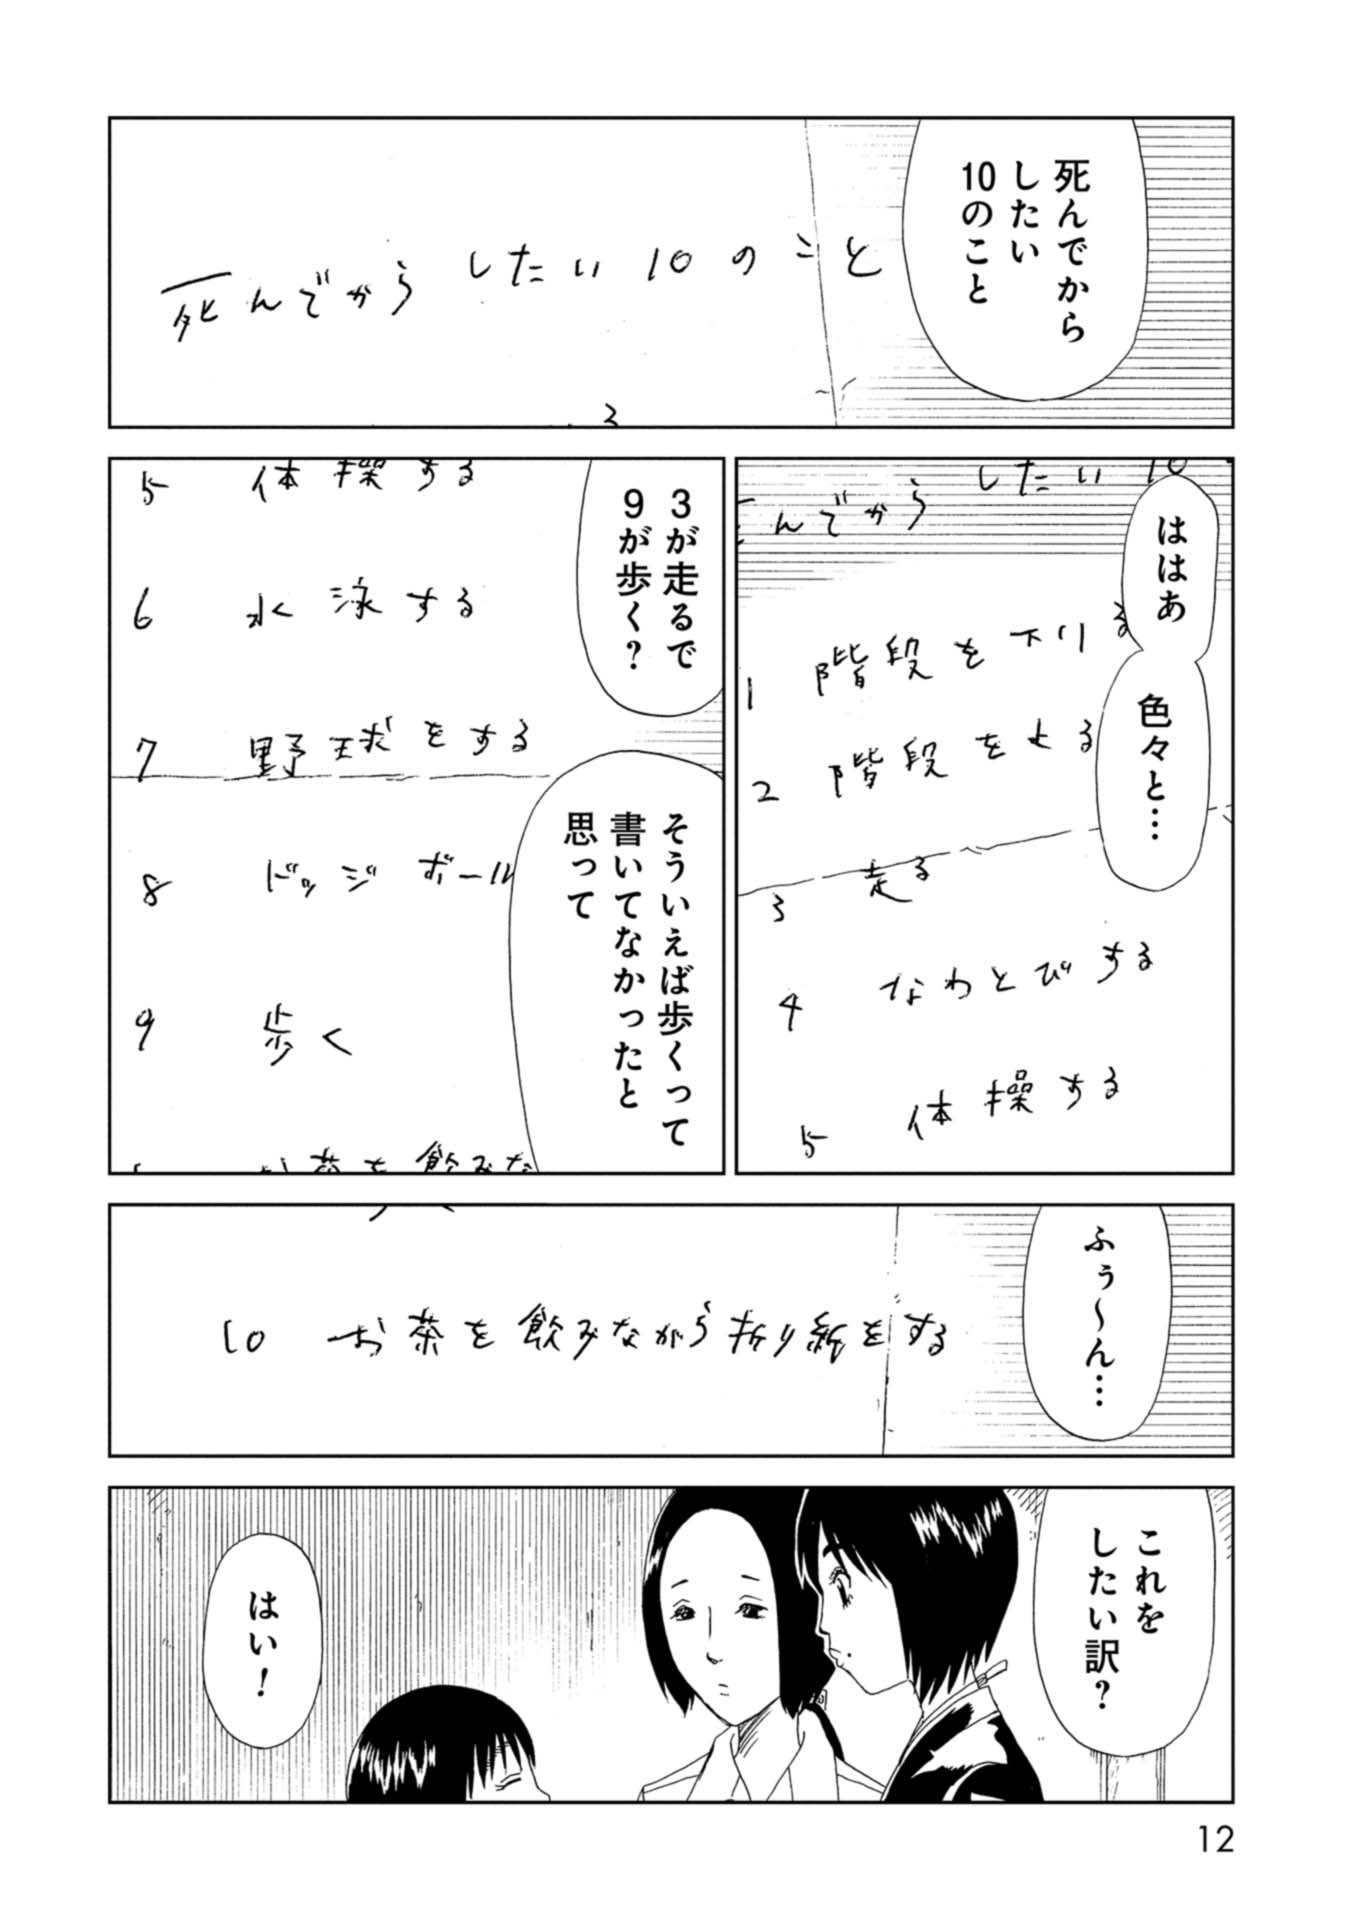 死んでから
したい
10のこと
死んでからしたい10のこと
3
ははあ
色々と…
したい10
んでから
1 階段を下りる
2 階段を上る
3 走る
4 なわとびする
5 体操する
3が走るで
9が歩く?
そういえば歩くって
書いてなかったと
思って
5 体操する
6 水泳する
7 野球をする
8 ドッジボール
9 歩く
お茶を飲みな
ふぅ〜ん…
10 お茶を飲みながら折り紙をする
これを
したい訳?
はい!
12